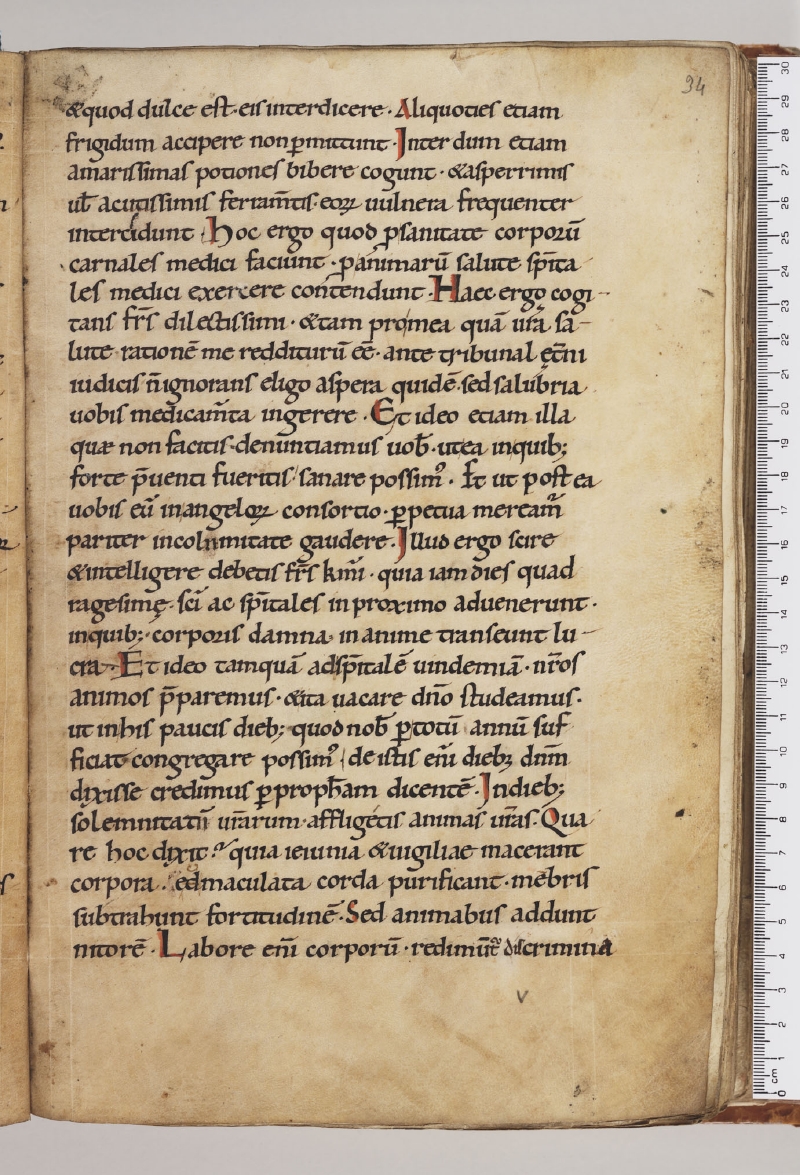 34
&quod dulce est· eis interdicere· Aliquoties etiam
frigidum accipere non ꝑmittunt· Inter dum etiam
amarissimas potiones bibere cogunt· &asperrimis
ut̄ acutissimis ferram̄tis· eoꝝ uulnera frequenter
intercidunt· Hoc ergo quod ꝓsanitate corporū
carnales medici faciunt· ꝓanimarū salute sp̄ita
les medici exercere contendunt· Haec ergo cogi-
tans fr̄s dilectissimi· &tam pro mea quā ur̄a sa-
lute rationē me redditurū eē· ante tribunal ęt̄ni
iudicis n̄ ignorans eligo aspera quidē· sed salubria
uobis medicam̄ta ingerere· Et ideo etiam illa
quæ non facitis· denuntiamus uob̄· ut ea in quib;
forte p̄uenti fueritis· sanare possim᷒· Et ut post ea
uobis cū in angeloꝝ consortio· ꝑpetua meream̄
pariter incolumitate gaudere· Illud ergo scire
&intelligere debetis fr̄s km̄i· quia iam dies quad
ragesimę· sc̄i ac sp̄itales in proximo aduenerunt·
in quib;· corporis damna· in anime transeunt lu-
cra· Et ideo tamquā ad sp̄italē uindemiā· nr̄os
animos p̄paremus· &ita uacare dn̄o studeamus·
ut in his paucis dieb; quod nob̄ ꝑ totū annū suf
ficiat congregare possim᷒· de istis eni᷒ dieb; dnm̄
dixisse credimus ꝑ proph̄am dicentē· In dieb;
solemnitatū ur̄arum· affligetis animas ur̄as· Qua
re hoc dixit? quia ieiunia &uigiliae macerant
corpora· sed maculata corda purificant· mēbris
subtrahunt fortitudinē· Sed animabus addunt
nitorē· Labore eni᷒ corporū· redimunt᷒ discrimina
V